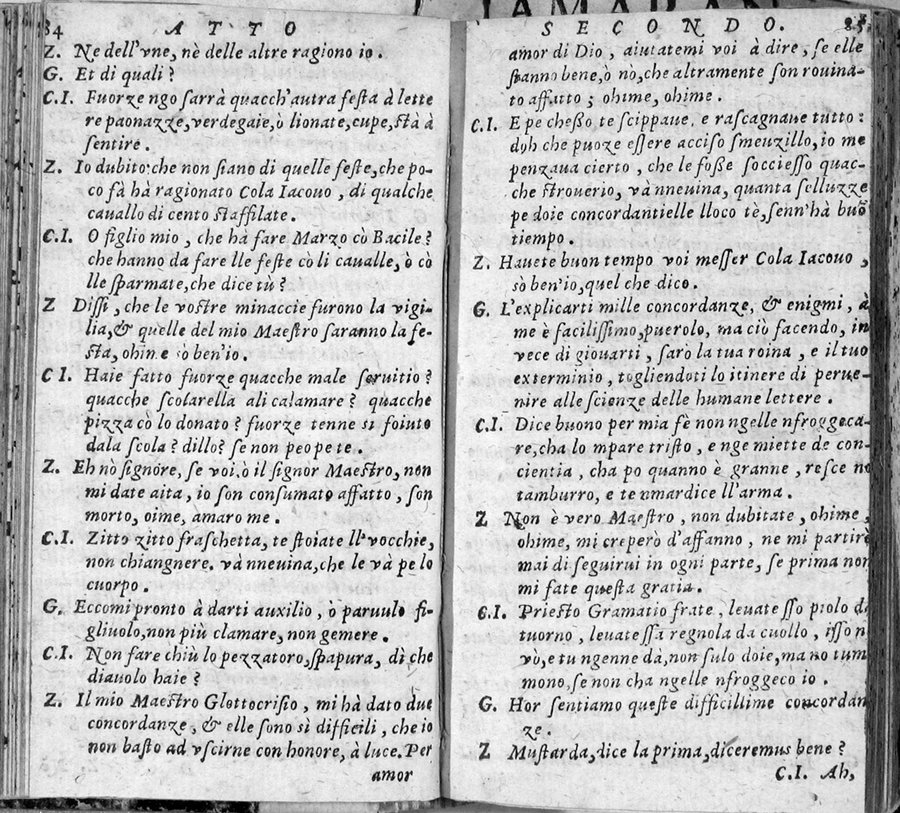 84 ATTO
Z. Ne dell'vne, nè delle altre ragiono io.
G. Et di quali?
C.I. Fuorze ngo sarrà quacch'autra festa à lette
re paonazze, verdegaie, ò lionate, cupe, stà à
sentire.
Z. Io dubito che non siano di quelle feste, che po-
co fà hà ragionato Cola Iacouo, di qualche
cauallo di cento staffilate.
C.I. O figlio mio, che hà fare Marzo cò Bacile?
che hanno da fare lle feste cò li caualle, ò cò
lle sparmate, che dice tù?
Z Dissi, che le vostre minaccie furono la vigi-
lia, & quelle del mio Maestro saranno la fe-
sta, ohime sò ben'io.
C I. Haie fatto fuorze quacche male seruitio?
quacche scolarella ali calamare? quacche
pizza cò lo donato? fuorze tenne si foiuto
dala scola? dillo? se non peo pe te.
Z. Eh nò signore, se voi, ò il signor Maestro, non
mi date aita, io son consumato affatto, son
morto, oime, amaro me.
C.I. Zitto zitto fraschetta, te stoiate ll'vocchie,
non chiangnere, và nneuina, che le và pe lo
cuorpo.
G. Eccomi pronto à darti auxilio, ò paruulo fi-
gliuolo, non più clamare, non gemere.
C.I. Non fare chiù lo pezzatoro, spapura, dì che
diauolo haie?
Z. Il mio Maestro Glottocrisio, mi hà dato due
concordanze, & elle sono sì difficili, che io
non basto ad vscirne con honore, à luce. Per
amor
SECONDO. 85
amor di Dio, aiutatemi voi à dire, se elle
stanno bene, ò nò, che altramente son rouina-
to affatto; ohime, ohime.
C.I. E pe chesso te scippaue, e rascagnaue tutto:
doh che puoze essere acciso smeuzillo, io me
penzaua cierto, che le fosse socciesso quac-
che stroverio, và nneuina, quanta selluzze
pe doie concordantielle lloco tè, senn'hà buõ
tiempo.
Z. Hauete buon tempo voi messer Cola Iacouo,
sò ben'io, quel che dico.
G. L'explicarti mille concordanze, & enigmi, à
me è facilissimo, puerolo, ma ciò facendo, in
vece di giouarti, sarò la tua roina, e il tuo
exterminio, togliendoti lo itinere di perue-
nire alle scienze delle humane lettere.
C.I. Dice buono per mia fè non ngelle nfroggeca-
re, cha lo mpare tristo, e nge miette de con-
cientia, cha po quanno è granne, resce no
tamburro, e te vmardice ll'arma.
Z Non è vero Maestro, non dubitate, ohime,
ohime, mi creperò d'affanno, ne mi partirò
mai di seguirui in ogni parte, se prima non
mi fate questa gratia.
C.I. Priesto Gramatio frate, leuate sso piolo di
tuorno, leuate ssa regnola da cuollo, isso n
vò, e tu ngenne dà, non sulo doie, ma no tum
mono, se non cha ngelle nfroggeco io.
G. Hor sentiamo queste difficillime concordan
ze.
Z Mustarda, dice la prima, diceremus bene?
C.I. Ah,